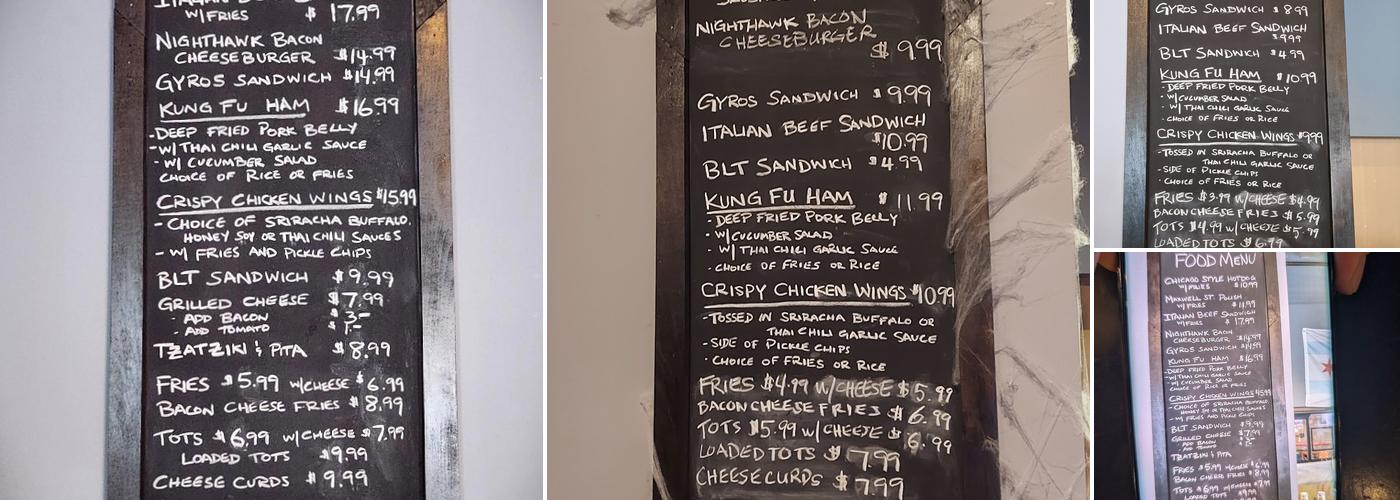 W/FRIES $ 17.99
NIGHTHAWK BACON
CHEESEBURGER $14.99
GYROS SANDWICH $14.99
KUNG FU HAM $16.99
-DEEP FRIED PORK BELLY
-W/ THAI CHILI GARLIC SAUCE
-W/ CUCUMBER SALAD
CHOICE OF RICE OR FRIES
CRISPY CHICKEN WINGS $15.99
-CHOICE OF SRIRACHA BUFFALO,
HONEY SOY OR THAI CHILI SAUCES
-W/ FRIES AND PICKLE CHIPS
BLT SANDWICH $9.99
GRILLED CHEESE $7.99
- ADD BACON $3-
- ADD TOMATO $1-
TZATZIKI & PITA $8.99
FRIES $5.99 W/CHEESE $6.99
BACON CHEESE FRIES $8.99
TOTS $6.99 W/CHEESE $7.99
LOADED TOTS $9.99
CHEESE CURDS $9.99
NIGHTHAWK BACON
CHEESEBURGER
$ 9.99
GYROS SANDWICH $ 9.99
ITALIAN BEEF SANDWICH
$10.99
BLT SANDWICH $4.99
KUNG FU HAM $11.99
- DEEP FRIED PORK BELLY
- W/ CUCUMBER SALAD
- W/ THAI CHILI GARLIC SAUCE
- CHOICE OF FRIES OR RICE
CRISPY CHICKEN WINGS $10.99
-TOSSED IN SRIRACHA BUFFALO OR
THAI CHILI GARLIC SAUCE
-SIDE OF PICKLE CHIPS
- CHOICE OF FRIES OR RICE
FRIES $4.99 W/CHEESE $5.99
BACON CHEESE FRIES $6.99
TOTS $5.99 W/ CHEESE $6.99
LOADED TOTS $7.99
CHEESE CURDS $7.99
GYROS SANDWICH $8.99
ITALIAN BEEF SANDWICH
$9.99
BLT SANDWICH $4.99
KUNG FU HAM $10.99
- DEEP FRIED PORK BELLY
- W/ CUCUMBER SALAD
- W/ THAI CHILI GARLIC SAUCE
- CHOICE OF FRIES OR RICE
CRISPY CHICKEN WINGS $9.99
-TOSSED IN SRIRACHA BUFFALO OR
THAI CHILI GARLIC SAUCE
-SIDE OF PICKLE CHIPS
- CHOICE OF FRIES OR RICE
FRIES $3.99 W/CHEESE $4.99
BACON CHEESE FRIES $5.99
TOTS $4.99 W/ CHEESE $5.99
LOADED TOTS $6.99
FOOD MENU
CHICAGO STYLE HOTDOG
W/FRIES $10.99
MAXWELL ST. POLISH
W/FRIES $11.99
ITALIAN BEEF SANDWICH
W/FRIES $17.99
NIGHTHAWK BACON
CHEESEBURGER $14.99
GYROS SANDWICH $14.99
KUNG FU HAM $16.99
-DEEP FRIED PORK BELLY
-W/ THAI CHILI GARLIC SAUCE
-W/ CUCUMBER SALAD
CHOICE OF RICE OR FRIES
CRISPY CHICKEN WINGS $15.99
-CHOICE OF SRIRACHA BUFFALO,
HONEY SOY OR THAI CHILI SAUCES
-W/ FRIES AND PICKLE CHIPS
BLT SANDWICH $9.99
GRILLED CHEESE $7.99
- ADD BACON $3-
- ADD TOMATO $1-
TZATZIKI & PITA
FRIES $5.99 W/CHEESE $6.99
BACON CHEESE FRIES $8.99
TOTS $6.99 W/CHEESE $7.99
LOADED TOTS $9.99